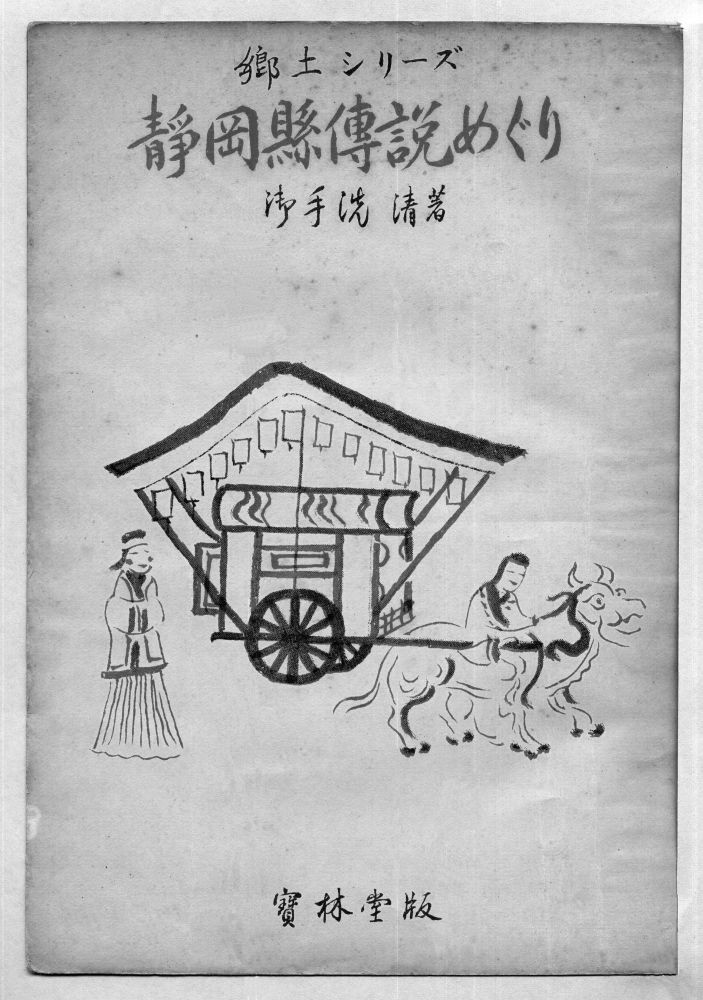 郷土シリーズ
靜岡縣傳説めぐり
御手洗 清著
寶林堂版